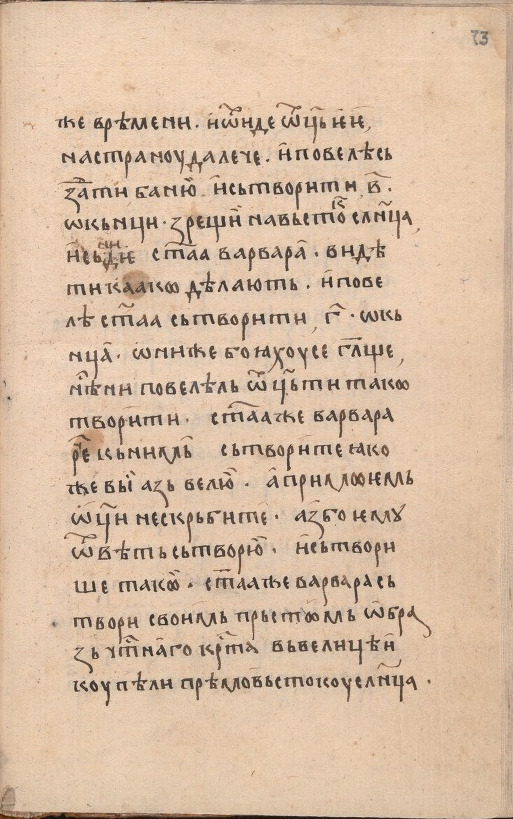 73
же врѣмени. и҆ ѿиде ѿц҃ь и҆ е҆ѥ,
на страноу далече. и҆ повелѣ сь
ꙁ꙯ати баню̀. и҆ сьтворити, в҃.
ѡкьнци. ꙁрещи на вьсто҇к сл҃нца,
и҆ сьниде ст҃аа варвара̀. видѣ
ти кааакѡ дѣлають. и҆ пове
лѣ ст҃аа сьтворити, г҃. ѡкь
нца̀. ѡни же бо ꙗхоу се гл҃ще,
мнѣ ни повелѣль ѿц҃ь ти такѡ
творити. ст҃аа же варвара
ре҇ кь нимь сьтворите ꙗко
же вы̏ аꙁь велю̀. а̀ при моѥмь
ѿц҃и не скрьбите. аꙁ бо ѥмꙋ
ѿвѣть сьтворю̀. и҆ сьтвори
ше такѡ̀. ст҃аа же варвара сь
твори своимь прьстѡмь ѡ҆бра
ꙁь ч҇тнаго кр҇та вь велицѣи
коупѣли прѣмо вьстокоу сл҃нца.